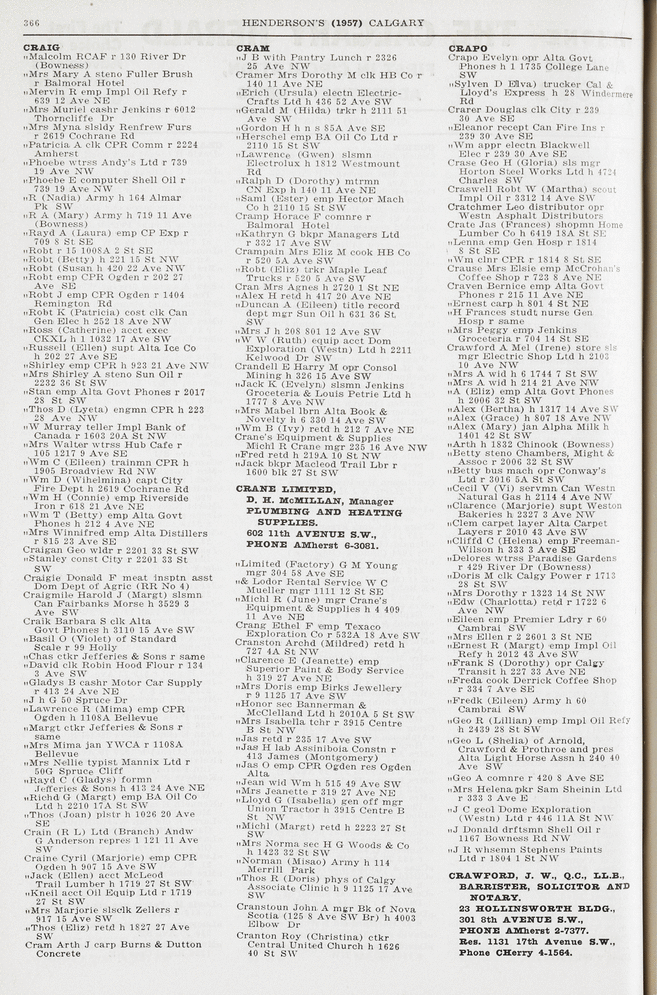 366
HENDERSON'S (1957) CALGARY
CRAIG
„Malcolm RCAF r 130 River Dr
(Bowness)
„Mrs Mary A steno Fuller Brush
r Balmoral Hotel
„Mervin R emp Impl Oil Refy r
639 12 Ave NE
„Mrs Muriel cashr Jenkins r 6012
Thorncliffe Dr
„Mrs Myna slsldy Renfrew Furs
r 2619 Cochrane Rd
„Patricia A clk CPR Comm r 2224
Amherst
„Phoebe wtrss Andy's Ltd r 739
19 Ave NW
„Phoebe E computer Shell Oil r
739 19 Ave NW
„R (Nadia) Army h 164 Almar
Pk SW
„R A (Mary) Army h 719 11 Ave
(Bowness)
„Rayd A (Laura) emp CP Exp r
709 8 St SE
„Robt r 15 1008A 2 St SE
„Robt (Betty) h 221 15 St NW
„Robt (Susan h 420 22 Ave NW
„Robt emp CPR Ogden r 202 27
Ave SE
„Robt J emp CPR Ogden r 1404
Remington Rd
„Robt K (Patricia) cost clk Can
Gen Elec h 252 18 Ave NW
„Ross (Catherine) acct exec
CKXL h 1 1032 17 Ave SW
„Russell (Ellen) supt Alta Ice Co
h 202 27 Ave SE
„Shirley emp CPR h 923 21 Ave NW
„Mrs Shirley A steno Sun Oil r
2232 36 St SW
„Stan emp Alta Govt Phones r 2017
28 St SW
„Thos D (Lyeta) engmn CPR h 223
28 Ave NW
„W Murray teller Impl Bank of
Canada r 1603 20A St NW
„Mrs Walter wtrss Hub Cafe r
105 1217 9 Ave SE
„Wm C (Eileen) trainmn CPR h
1905 Broadview Rd NW
„Wm D (Wilhelmina) capt City
Fire Dept h 2619 Cochrane Rd
„Wm H (Connie) emp Riverside
Iron r 618 21 Ave NE
„Wm T (Betty) emp Alta Govt
Phones h 212 4 Ave NE
„Mrs Winnifred emp Alta Distillers
r 815 23 Ave SE
Craigan Geo wldr r 2201 33 St SW
„Stanley const City r 2201 33 St
SW
Craigie Donald F meat insptn asst
Dom Dept of Agric (RR No 4)
Craigmile Harold J (Margt) slsmn
Can Fairbanks Morse h 3529 3
Ave SW
Craik Barbara S clk Alta
Govt Phones h 3110 15 Ave SW
„Basil O (Violet) of Standard
Scale r 99 Holly
„Chas ctkr Jefferies & Sons r same
„David clk Robin Hood Flour r 134
3 Ave SW
„Gladys B cashr Motor Car Supply
r 413 24 Ave NE
„J h G 50 Spruce Dr
„Lawrence R (Mima) emp CPR
Ogden h 1108A Bellevue
„Margt ctkr Jefferies & Sons r
same
„Mrs Mima jan YWCA r 1108A
Bellevue
„Mrs Nellie typist Mannix Ltd r
50G Spruce Cliff
„Rayd C (Gladys) formn
Jefferies & Sons h 413 24 Ave NE
„Richd G (Margt) emp BA Oil Co
Ltd h 2210 17A St SW
„Thos (Joan) plstr h 1026 20 Ave
SE
Crain (R L) Ltd (Branch) Andw
G Anderson repres 1 121 11 Ave
SW
Craine Cyril (Marjorie) emp CPR
Ogden h 907 15 Ave SW
„Jack (Ellen) acct McLeod
Trail Lumber h 1719 27 St SW
„Kneil acct Oil Equip Ltd r 1719
27 St SW
„Mrs Marjorie slsclk Zellers r
917 15 Ave SW
„Thos (Eliz) retd h 1827 27 Ave
SW
Cram Arth J carp Burns & Dutton
Concrete
CRAM
„J B with Pantry Lunch r 2326
25 Ave NW
Cramer Mrs Dorothy M clk HB Co r
140 11 Ave NE
„Erich (Ursula) electn Electric-
Crafts Ltd h 436 52 Ave SW
„Gerald M (Hilda) trkr h 2111 51
Ave SW
„Gordon H h n s 85A Ave SE
„Herschel emp BA Oil Co Ltd r
2110 15 St SW
„Lawrence (Gwen) slsmn
Electrolux h 1812 Westmount
Rd
„Ralph D (Dorothy) mtrmn
CN Exp h 140 11 Ave NE
„Saml (Ester) emp Hector Mach
Co h 2110 15 St SW
Cramp Horace F comnre r
Balmoral Hotel
„Kathryn G bkpr Managers Ltd
r 332 17 Ave SW
Crampain Mrs Eliz M cook HB Co
r 520 5A Ave SW
„Robt (Eliz) trkr Maple Leaf
Trucks r 520 5 Ave SW
Cran Mrs Agnes h 2720 1 St NE
„Alex H retd h 417 20 Ave NE
„Duncan A (Eileen) title record
dept mgr Sun Oil h 631 36 St
SW
„Mrs J h 208 801 12 Ave SW
„W W (Ruth) equip acct Dom
Exploration (Westn) Ltd h 2211
Kelwood Dr SW
Crandell E Harry M opr Consol
Mining h 326 15 Ave SW
„Jack K (Evelyn) slsmn Jenkins
Groceteria & Louis Petrie Ltd h
1777 8 Ave NW
„Mrs Mabel lbrn Alta Book &
Novelty h 6 330 14 Ave SW
„Wm B (Ivy) retd h 212 7 Ave NE
Crane's Equipment & Supplies
Michl R Crane mgr 235 16 Ave NW
„Fred retd h 219A 10 St NW
„Jack bkpr Macleod Trail Lbr r
1600 blk 27 St SW
CRANE LIMITED,
D. H. McMILLAN, Manager
PLUMBING AND HEATING
SUPPLIES.
602 11th AVENUE S.W.,
PHONE AMherst 6-3081.
„Limited (Factory) G M Young
mgr 304 58 Ave SE
„& Lodor Rental Service W C
Mueller mgr 1111 12 St SE
„Michl R (June) mgr Crane's
Equipment & Supplies h 4 409
11 Ave NE
Crang Ethel F emp Texaco
Exploration Co r 532A 18 Ave SW
Cranston Archd (Mildred) retd h
727 4A St NW
„Clarence E (Jeanette) emp
Superior Paint & Body Service
h 319 27 Ave NE
„Mrs Doris emp Birks Jewellery
r 9 1125 17 Ave SW
„Honor sec Bannerman &
McClelland Ltd h 2010A 5 St SW
„Mrs Isabella tchr r 3915 Centre
B St NW
„Jas retd r 235 17 Ave SW
„Jas H lab Assiniboia Constn r
413 James (Montgomery)
„Jas O emp CPR Ogden res Ogden
Alta
„Jean wid Wm h 515 49 Ave SW
„Mrs Jeanette r 319 27 Ave NE
„Lloyd G (Isabella) gen off mgr
Union Tractor h 3915 Centre B
St NW
„Michl (Margt) retd h 2223 27 St
SW
„Mrs Norma sec H G Woods & Co
h 1423 32 St SW
„Norman (Misao) Army h 114
Merrill Park
„Thos R (Doris) phys of Calgy
Associate Clinic h 9 1125 17 Ave
SW
Cranstoun John A mgr Bk of Nova
Scotia (125 8 Ave SW Br) h 4003
Elbow Dr
Cranton Roy (Christina) ctkr
Central United Church h 1626
40 St SW
CRAPO
Crapo Evelyn opr Alta Govt
Phones h 1 1735 College Lane
SW
„Sylven D Elva) trucker Cal &
Lloyd's Express h 28 Windermere
Rd
Crarer Douglas clk City r 239
30 Ave SE
„Eleanor recept Can Fire Ins r
239 30 Ave SE
„Wm appr electn Blackwell
Elec r 239 30 Ave SE
Crase Geo H (Gloria) sls mgr
Horton Steel Works Ltd h 4724
Charles SW
Craswell Robt W (Martha) scout
Impl Oil r 3312 14 Ave SW
Cratchmer Leo distributor opr
Westn Asphalt Distributors
Crate Jas (Frances) shopmn Home
Lumber Co h 6419 18A St SE
„Lenna emp Gen Hosp r 1814
8 St SE
„Wm clnr CPR r 1814 8 St SE
Crause Mrs Elsie emp McCrohan's
Coffee Shop r 723 8 Ave NE
Craven Bernice emp Alta Govt
Phones r 215 11 Ave NE
„Ernest carp h 801 4 St NE
„H Frances studt nurse Gen
Hosp r same
„Mrs Peggy emp Jenkins
Groceteria r 704 14 St SE
Crawford A Mel (Irene) store sls
mgr Electric Shop Ltd h 2103
10 Ave NW
„Mrs A wid h 6 1744 7 St SW
„Mrs A wid h 214 21 Ave NW
„A (Eliz) emp Alta Govt Phones
h 2006 32 St SW
„Alex (Bertha) h 1317 14 Ave SW
„Alex (Grace) h 807 18 Ave NW
„Alex (Mary) jan Alpha Milk h
1401 42 St SW
„Arth h 1832 Chinook (Bowness)
„Betty steno Chambers, Might &
Assoc r 2006 32 St SW
„Betty bus mach opr Conway's
Ltd r 3016 5A St SW
„Cecil V (Vi) servmn Can Westn
Natural Gas h 2114 4 Ave NW
„Clarence (Marjorie) supt Weston
Bakeries h 2327 3 Ave NW
„Clem carpet layer Alta Carpet
Layers r 2010 43 Ave SW
„Cliffd C (Helena) emp Freeman-
Wilson h 333 3 Ave SE
„Delores wtrss Paradise Gardens
r 429 River Dr (Bowness)
„Doris M clk Calgy Power r 1713
28 St SW
„Mrs Dorothy r 1323 14 St NW
„Edw (Charlotte) retd r 1722 6
Ave NW
„Eileen emp Premier Ldry r 60
Cambrai SW
„Mrs Ellen r 2 2601 3 St NE
„Ernest R (Margt) emp Impl Oil
Refy h 2012 43 Ave SW
„Frank S (Dorothy) opr Calgy
Transit h 227 33 Ave NE
„Freda cook Derrick Coffee Shop
r 334 7 Ave SE
„Fredk (Eileen) Army h 60
Cambrai SW
„Geo R (Lillian) emp Impl Oil Refy
h 2439 28 St SW
„Geo L (Shelia) of Arnold,
Crawford & Prothroe and pres
Alta Light Horse Assn h 240 40
Ave SW
„Geo A comnre r 420 8 Ave SE
„Mrs Helena pkr Sam Sheinin Ltd
r 333 3 Ave E
„J C geol Dome Exploration
(Westn) Ltd r 446 11A St NW
„J Donald drftsmn Shell Oil r
1167 Bowness Rd NW
„J R whsemn Stephens Paints
Ltd r 1804 1 St NW
CRAWFORD, J. W., Q.C., LL.B.,
BARRISTER, SOLICITOR AND
NOTARY.
23 HOLLINSWORTH BLDG.,
301 8th AVENUE S.W.,
PHONE AMherst 2-7377.
Res. 1131 17th Avenue S.W.,
Phone CHerry 4-1564.